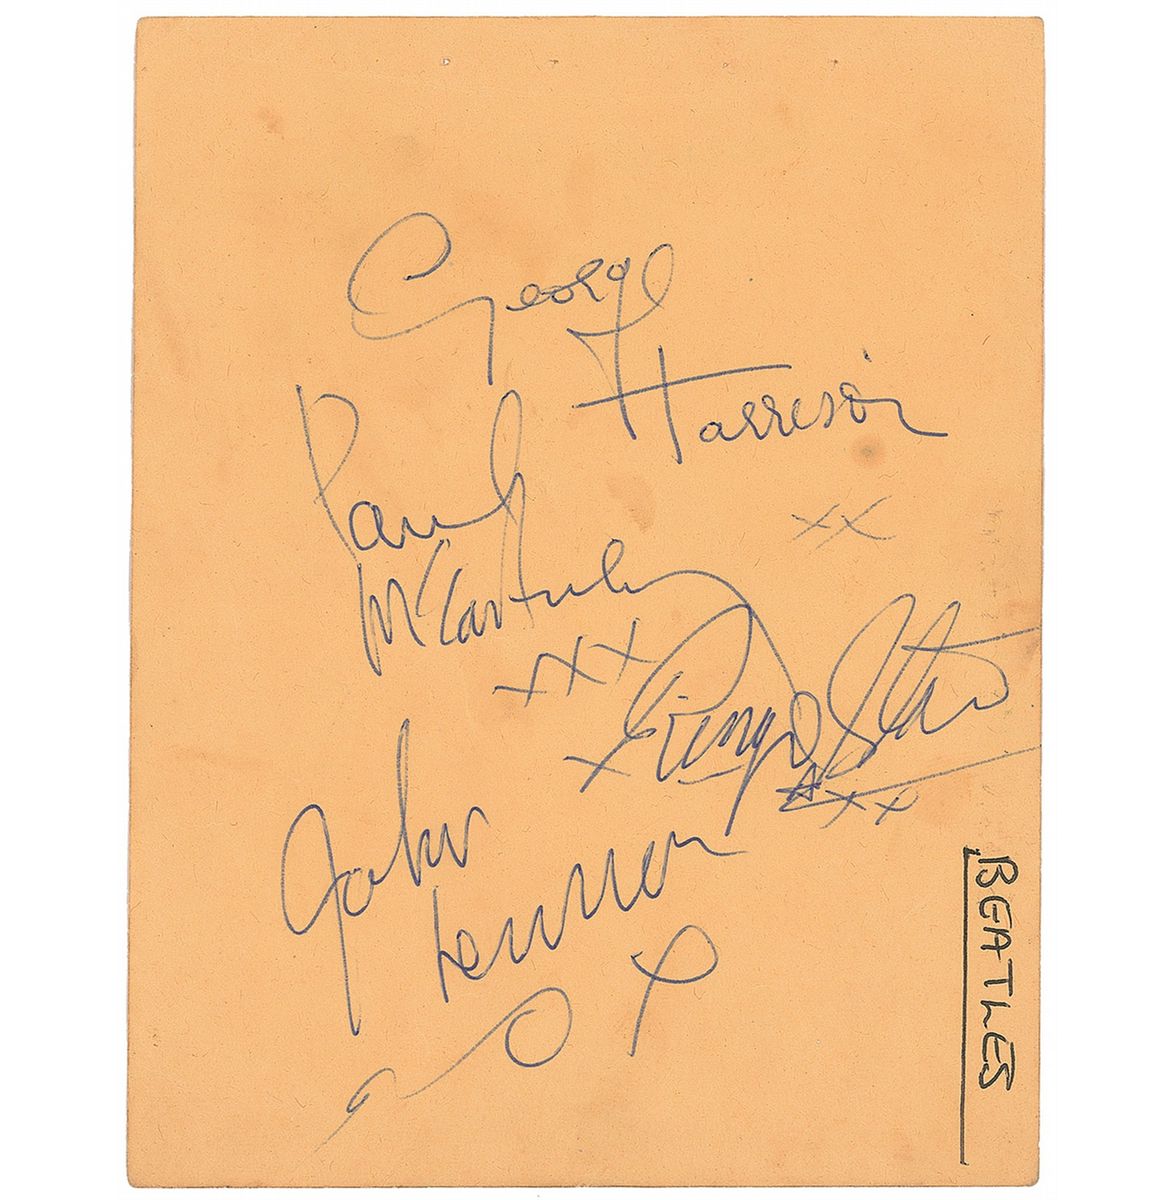 George
Harrison
xx
Paul
McCartney
xxx
x Ringo Starr
xx
John
Lennon
x
BEATLES